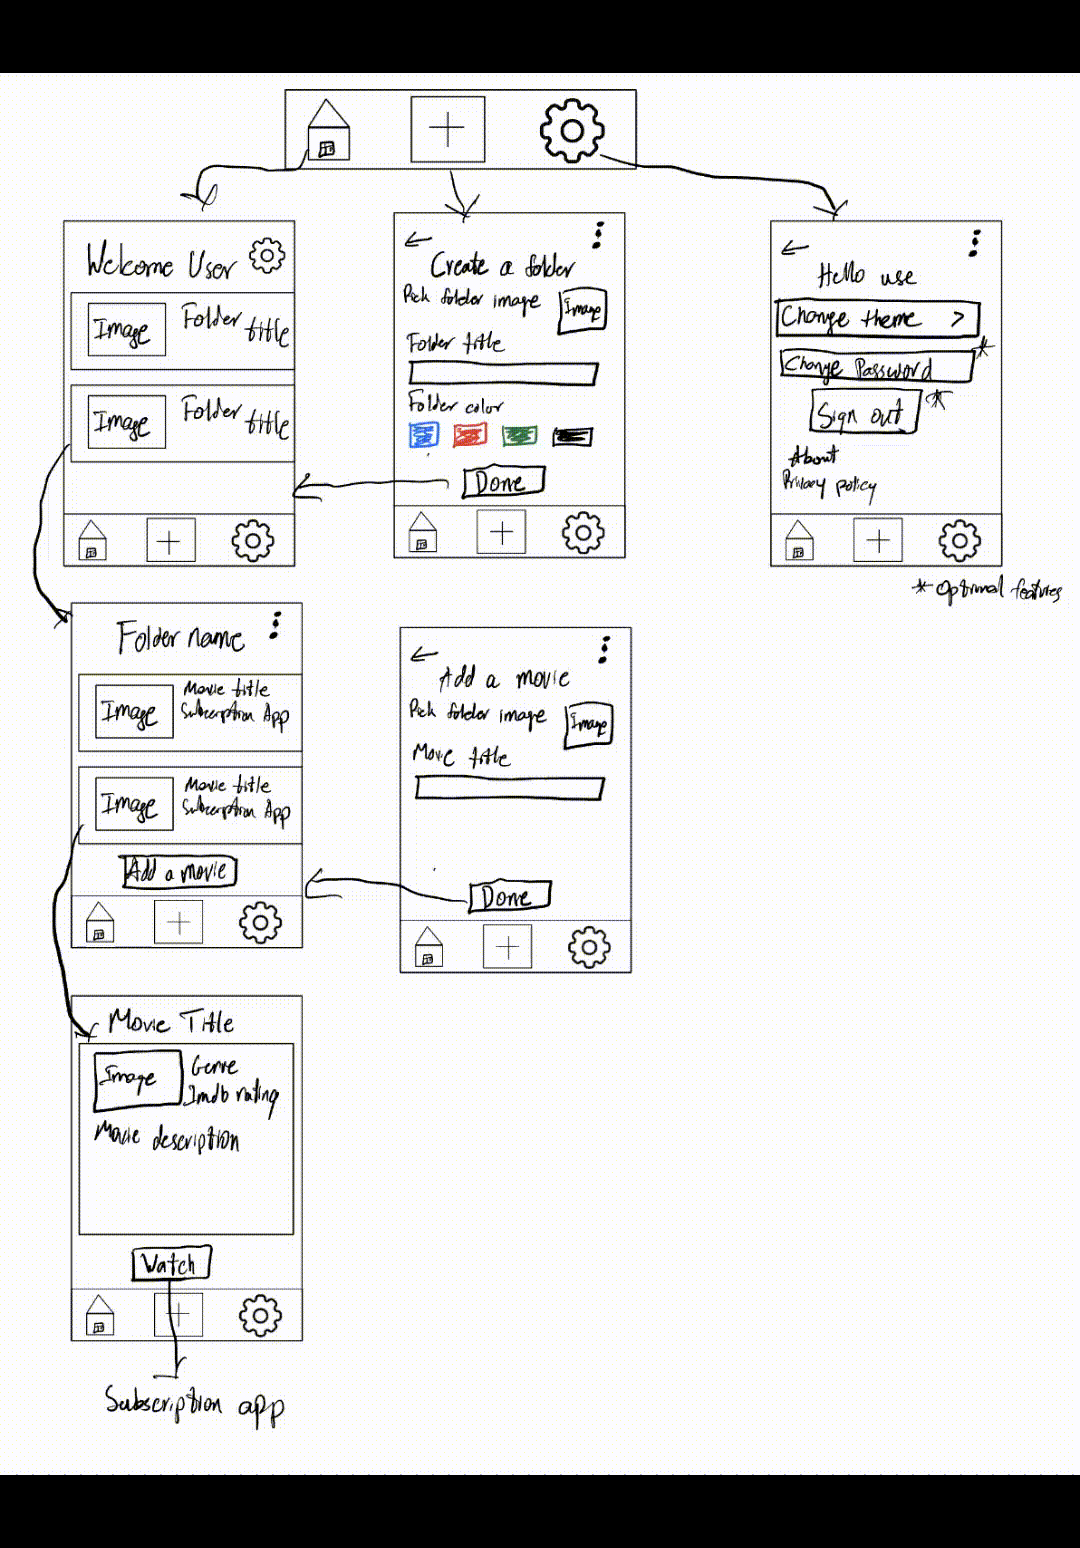 Welcome User
Image
Folder title
Image
Folder title
Create a folder
Pick folder image
Image
Folder title
Folder color
Done
Hello use
Change theme >
Change Password *
Sign out *
About
Privacy policy
* Optional features
Folder name
Image
Movie title
Subscription App
Image
Movie title
Subscription App
Add a movie
Add a movie
Pick folder image
Image
Movie title
Done
Movie Title
Image
Genre
Imdb rating
Movie description
Watch
Subscription app